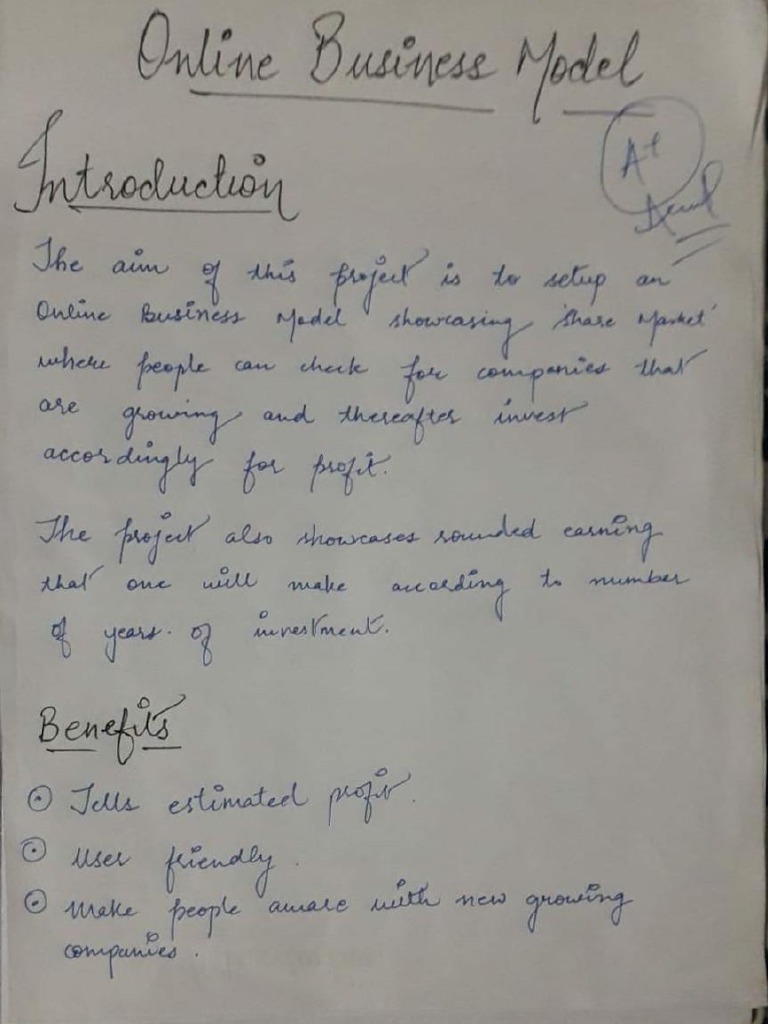 Online Business Model
A+
Introduction
The aim of this project is to setup an
Online Business Model showcasing 'Share Market'
where people can check for companies that
are growing and thereafter invest
accordingly for profit.
The project also showcases rounded earning
that one will make according to number
of years. of investment.
Benefits
Tells estimated profit.
User friendly.
Make people aware with new growing
companies.